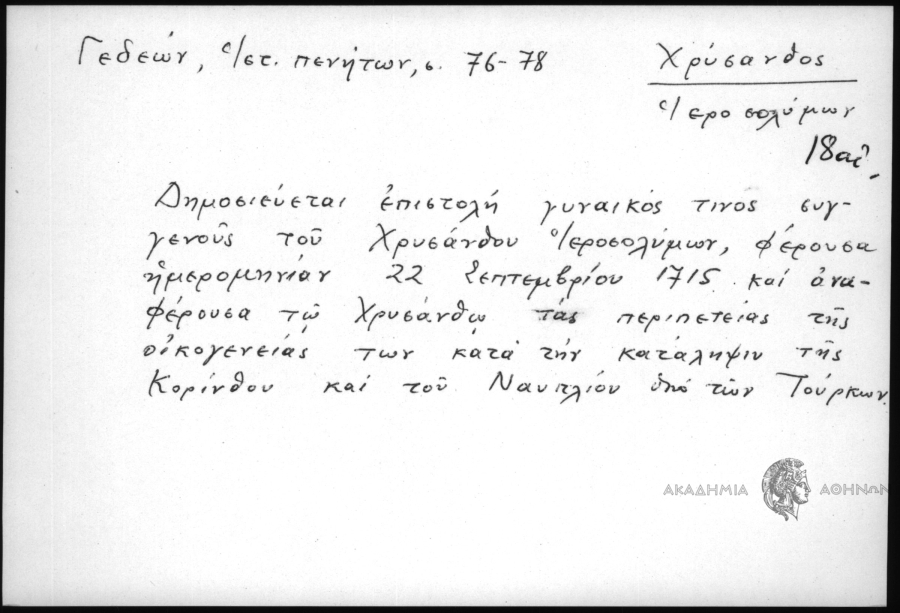 Γεδεών, Ἱστ. πενήτων, σ. 76-78
Χρύσανθος
Ἱεροσολύμων
18 αἰ.
Δημοσιεύεται ἐπιστολή γυναικός τινος συγ-
γενοῦς τοῦ Χρυσάνθου Ἱεροσολύμων, φέρουσα
ἡμερομηνίαν 22 Σεπτεμβρίου 1715 καί ἀνα-
φέρουσα τῷ Χρυσάνθῳ τάς περιπετείας τῆς
οἰκογενείας των κατά τήν κατάληψιν τῆς
Κορίνθου καί τοῦ Ναυπλίου ὑπό τῶν Τούρκων.
ΑΚΑΔΗΜΙΑ ΑΘΗΝΩΝ